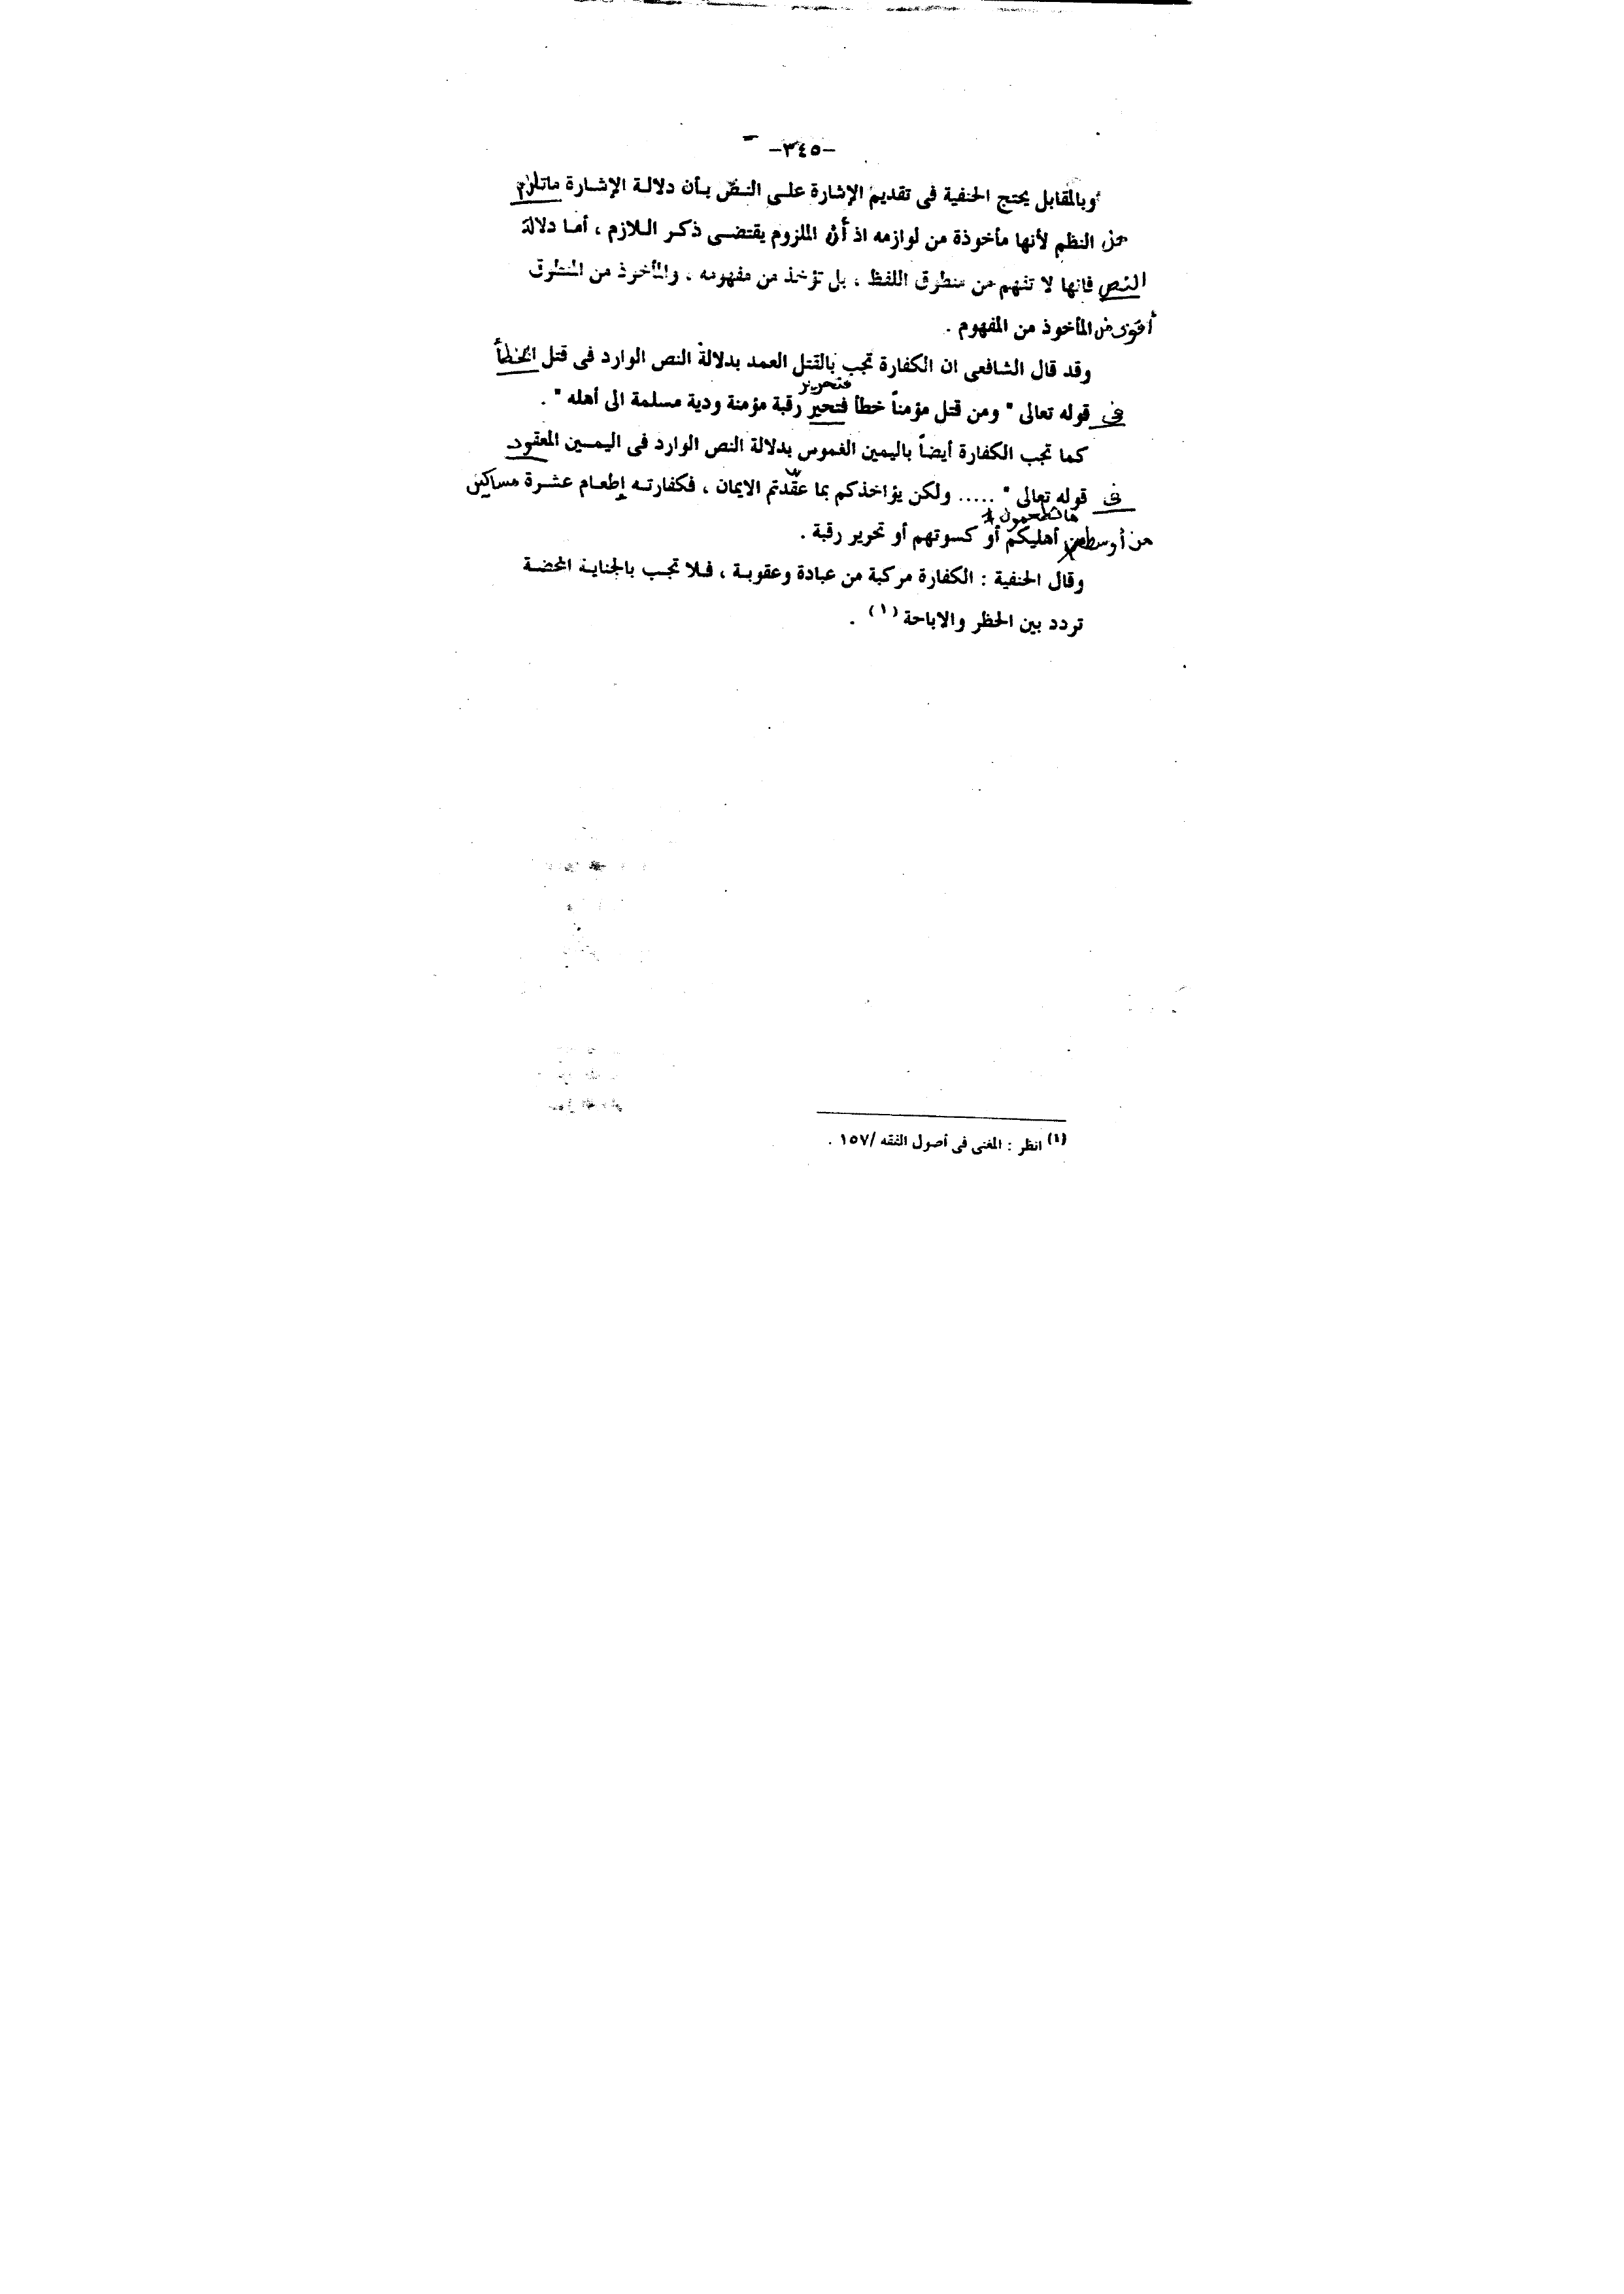 -٣٤٥-
وبالمقابل يحتج الحنفية فى تقديم الإشارة على النص بأن دلالة الإشارة ماتلزم
من النظم لأنها مأخوذة من لوازمه اذ أن الملزوم يقتضى ذكر اللازم ، أما دلالة
النص فانها لا تفهم من منطوق اللفظ ، بل تؤخذ من مفهومه ، والمأخوذ من المنطوق
أقوى من المأخوذ من المفهوم .
وقد قال الشافعى ان الكفارة تجب بالقتل العمد بدلالة النص الوارد فى قتل الخطأ
فتحرير
فى قوله تعالى " ومن قتل مؤمناً خطأ فتحير رقبة مؤمنة ودية مسلمة الى أهله " .
كما تجب الكفارة أيضاً باليمين الغموس بدلالة النص الوارد فى اليمين المعقود
فى قوله تعالى " ..... ولكن يؤاخذكم بما عقّدتم الايمان ، فكفارته إطعام عشرة مساكين
ما تطعمون
من أوسط أهليكم أو كسوتهم أو تحرير رقبة .
وقال الحنفية : الكفارة مركبة من عبادة وعقوبة ، فلا تجب بالجناية المحضة
تردد بين الحظر والاباحة (١) .
(١) انظر : المغنى فى أصول الفقه /١٥٧ .